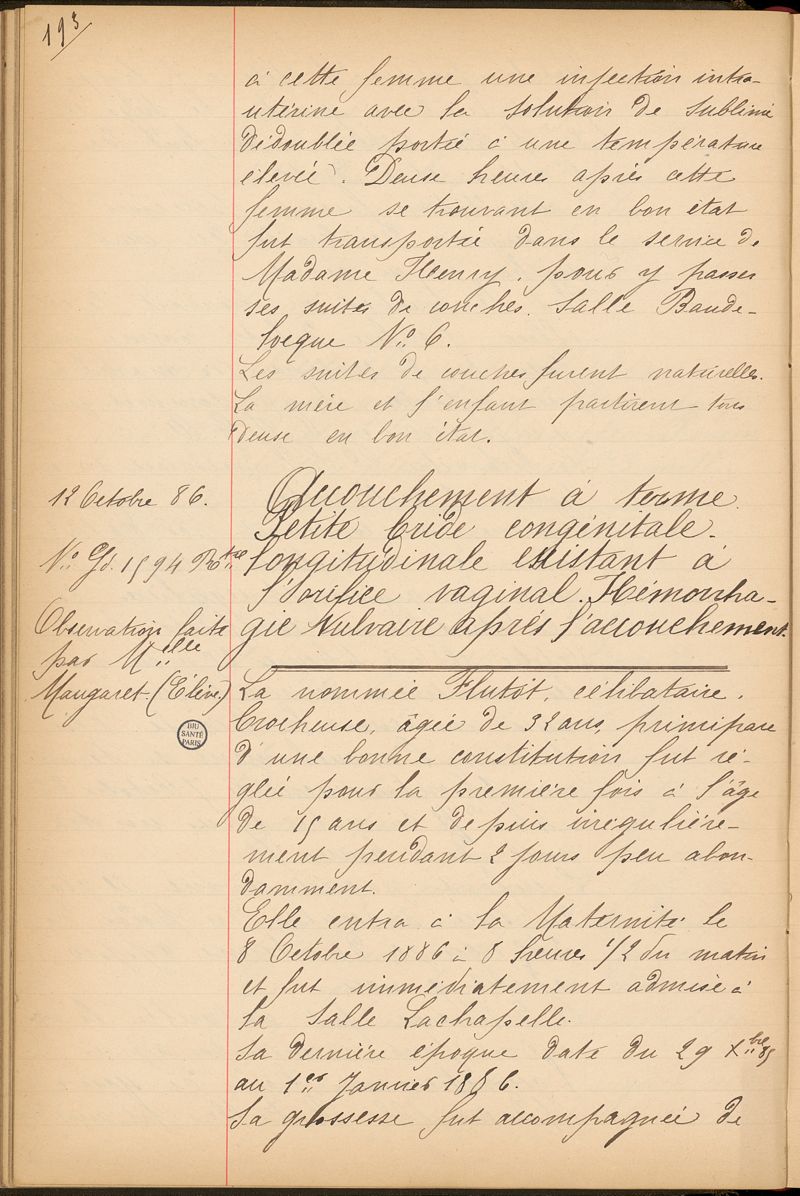 193
à cette femme une injection intra-
utérine avec la solution de sublimé
dédoublée portée à une température
élevée. Deuse heures après cette
femme se trouvant en bon état
fut transportée dans le service de
Madame Henry. pour y passer
ses suites de couches. Salle Baude-
locque N° 6.
Les suites de couches furent naturelles.
La mère et l'enfant partirent tous
deuse en bon état.
12 Octobre 86.
N° Gd. 1594
Observation faite
par Mlle
Maugaret. (Élève.)
Accouchement à terme.
Petite bride congénitale.
longitudinale existant à
l'orifice vaginal. Hémorrha-
gie vulvaire après l'accouchement.
La nommée Flutôt, célibataire.
brocheuse, âgée de 32 ans, primipare
d'une bonne constitution fut ré-
glée pour la première fois à l'âge
de 15 ans et depuis irrégulière-
ment pendant 2 jours peu abon-
damment.
Elle entra à la Maternité le
8 Octobre 1886 à 8 heures 1/2 du matin
et fut immédiatement admise à
la Salle Lachapelle.
Sa dernière époque date du 29 Xbre 85
au 1er Janvier 1886.
Sa grossesse fut accompagnée de
BIU
SANTÉ
PARIS